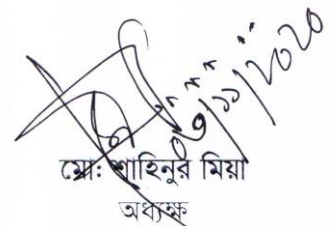 ০৩/১১/২০২০
মো: শাহিনুর মিয়া
অধ্যক্ষ